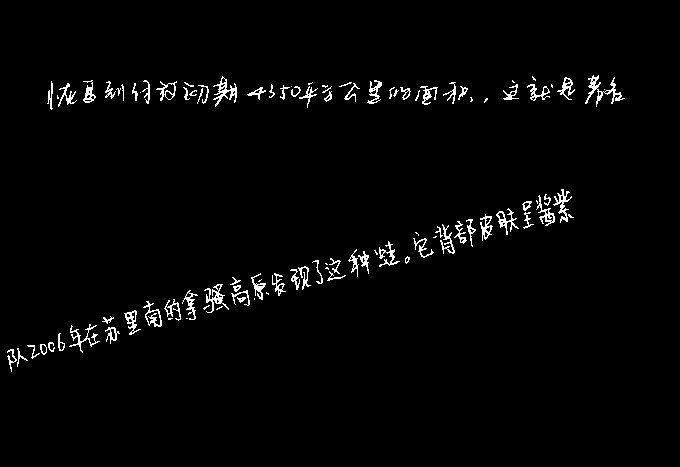 恢复到解放初期4350平方公里的面积，这就是著名
队2006年在苏里南的拿骚高原发现了这种蛙。它背部皮肤呈酱紫